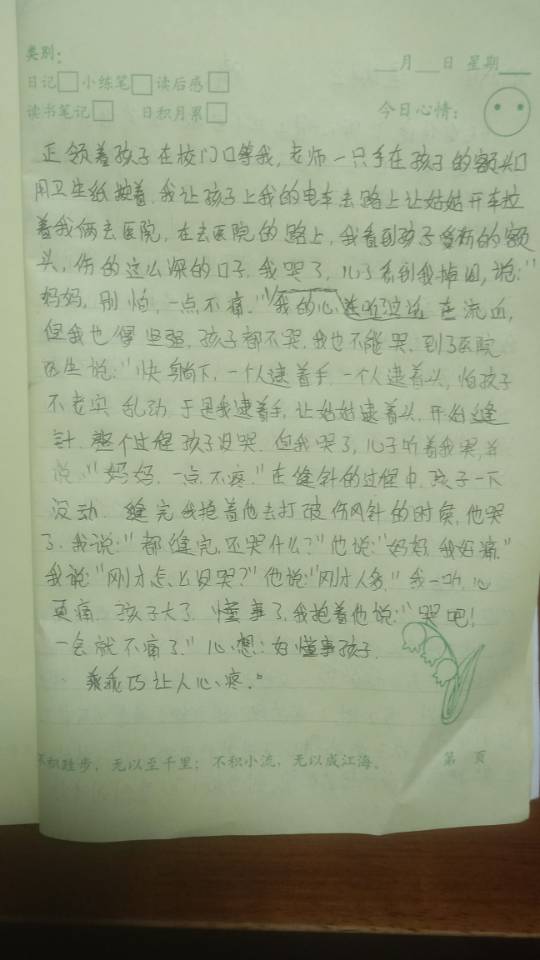 类别:
___月___日 星期___
日记□ 小练笔□ 读后感□
读书笔记□ 日积月累□ 今日心情:
正领着孩子在校门口等我,老师一只手在孩子的额头口
用卫生纸按着.我让孩子上我的电车去路上让姑姑开车拉
着我俩去医院,在去医院的路上,我看到孩子受伤的额
头,伤的这么深的口子,我哭了,儿子看到我掉泪,说:"
妈妈,别怕,一点不痛."我的心在流血,
但我也得坚强,孩子都不哭,我也不能哭.到了医院
医生说:"快躺下,一个人逮着手,一个人逮着头,怕孩子
不老实乱动.于是我逮着手,让姑姑逮着头,开始缝
针.整个过程孩子没哭.但我哭了,儿子听着我哭,并
说:"妈妈,一点不疼."在缝针的过程中,孩子一下
没动.缝完我抱着他去打破伤风针的时候,他哭
了,我说:"都缝完,还哭什么?"他说:"妈妈,我好痛."
我说:"刚才怎么没哭?"他说:"刚才人多."我一听,心
更痛.孩子大了,懂事了,我抱着他说:"哭吧!
一会就不痛了."心想:好懂事孩子.
乖乖巧让人心疼."
不积跬步,无以至千里;不积小流,无以成江海。 第 页